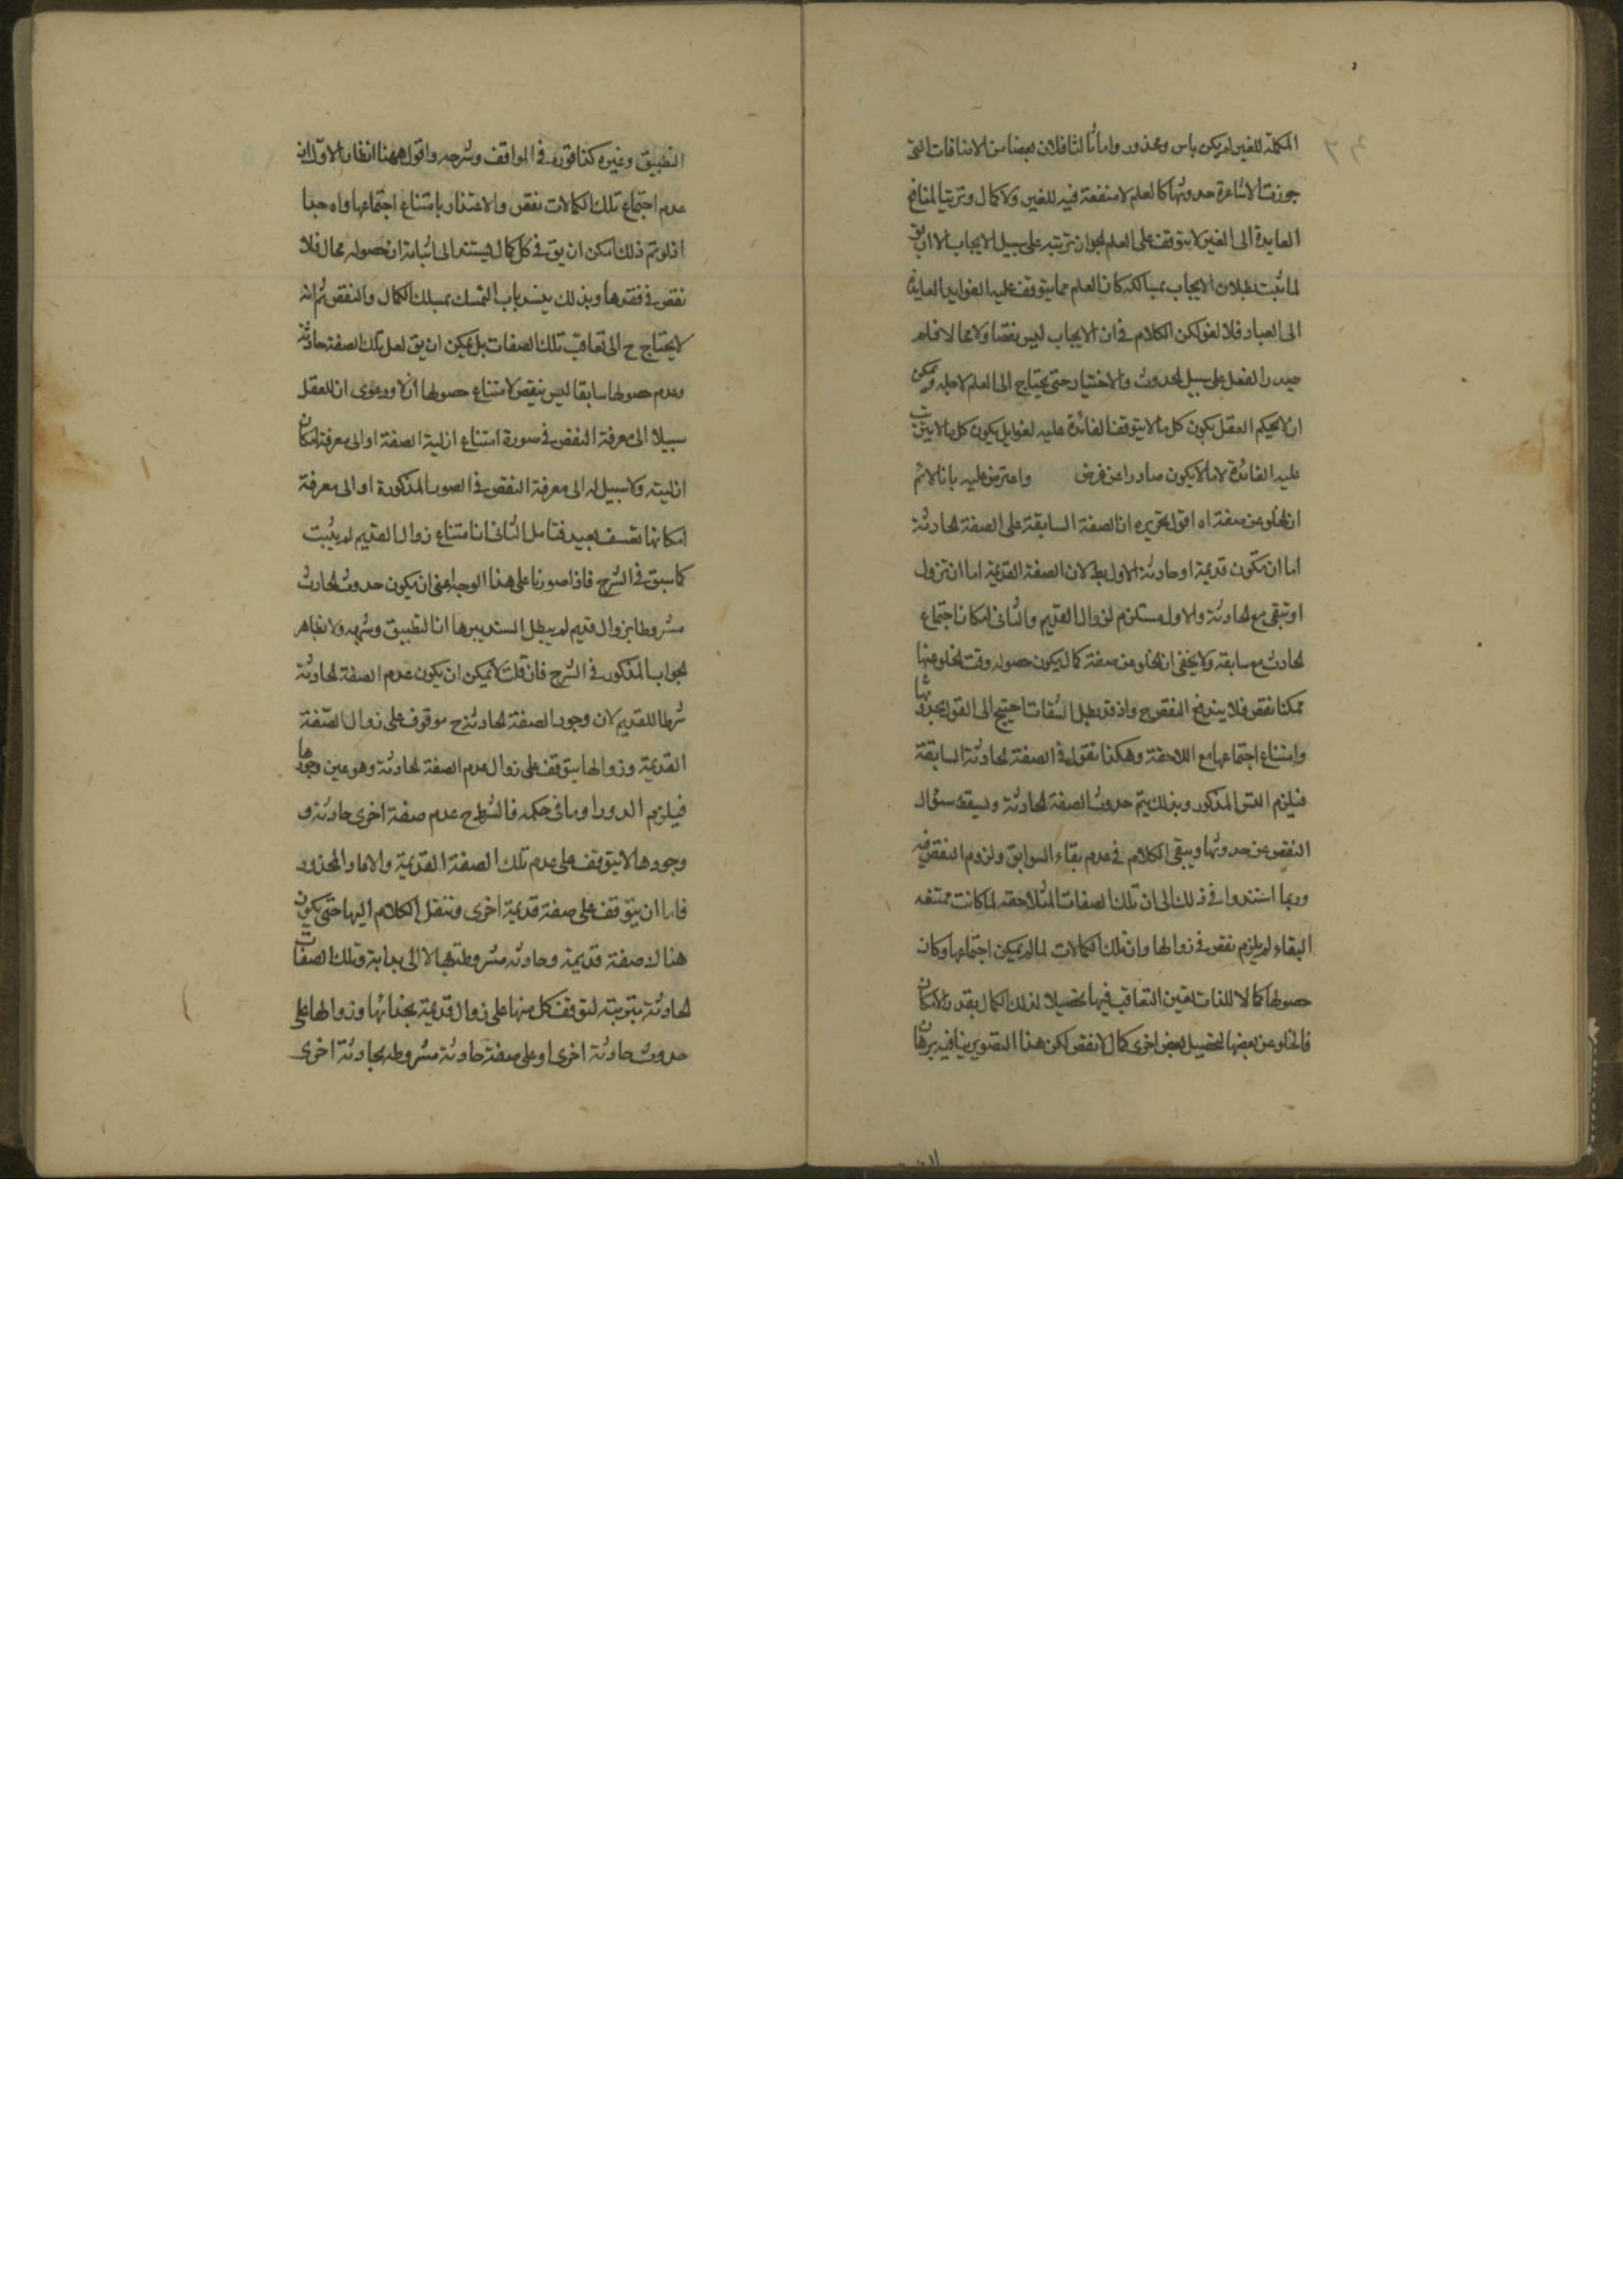 المكملة للغير لم يكن باس ومحذور واما ثالثا فلان بعضا من الاضافات التي
جوزت الاشاعرة حدوثها كالعلم لا منفعة فيه للغير ولا كمال وترتب المنافع
العايدة الى الغير لا يتوقف على العلم لجوان ترتبه على سبيل الايجاب الا ان يق
لما ثبت بطلان الايجاب بمسالكه كان العلم مما يتوقف عليه الفوايد العايدة
الى العباد فلا لغو لكن الكلام في ان الايجاب ليس نقصا ولا محالا فلم
صدر الفعل على سبيل الحدوث والاختيار حتى يحتاج الى العلم لاجله ويمكن
ان يحكم العقل بكون كل ما لا يتوقف الفائدة عليه لغوا بل بكون كل ما لا يترتب
عليه الفائدة لا ما لا يكون صادرا عن غرض واعترض عليه بانا لا ثم
ان الخلو عن صفة اه اقول تحريره ان الصفة السابقة على الصفة الحادثة
اما ان تكون قديمة او حادثة الاول بط لان الصفة القديمة اما ان تزول
او تبقى مع الحادثة والاول مستلزم لزوال القديم والثاني امكان اجتماع
الحادث مع سابقه ولا يخفى ان الخلو عن صفة كمال يكون حصوله وقت الخلو عنها
ممكنا نقص فلا يندفع النقض ح واذ قد بطل الشقات احتيج الى القول بحدوثها
وامتناع اجتماعها مع اللاحقة وهكذا نقول في الصفة الحادثة السابقة
فيلزم التس المذكور وبذلك يتم حدوث الصفة الحادثة ويسقط سؤال
النقص عن حدوثها ويبقى الكلام في عدم بقاء السوابق ولزوم النقص فيه
وربما استندوا في ذلك الى ان تلك الصفات المتلاحقة لما كانت ممتنعه
البقاء لم يلزم نقص في زوالها وان تلك الكمالات لما لم يمكن اجتماعها وكان
حصولها كمالا للذات تعين التعاقب فيها تحصيلا لذلك الكمال بقدر الامكان
فالخلو عن بعضها لتحصيل بعض اخرى كمال لا نقص لكن هذا التصوير ينافيه برهان
التطبيق وغيره كذا قوره في المواقف وشرحه واقول ههنا انظار الاول ان
عدم اجتماع تلك الكمالات نقص والاعتذار بامتناع اجتماعها واه جدا
اذ لو تم ذلك امكن ان يق في كل كمال يستند الى اثباته ان حصوله محال فلا
نقص في فقدها وبذلك ينسد باب التمسك بمسلك الكمال والنقص ثم انه
لا يحتاج ح الى تعاقب تلك الصفات بل يمكن ان يق لعل تلك الصفة حادثة
وعدم حصولها سابقا ليس بنقص لامتناع حصولها ازلا ودعوى ان للعقل
سبيلا الى معرفة النقص في صورة امتناع ازلية الصفة او الى معرفة امكان
ازليته ولا سبيل له الى معرفة النقص في الصور المذكورة او الى معرفة
امكانها تعسف بعيد فتامل الثاني ان امتناع زوال القديم لم يثبت
كما سبق في الشرح فاذا صورنا على هذا الوجه اعني ان يكون حدوث الحادث
مشروطا بزوال قديم لم يبطل السند ببرهان التطبيق وشبهه ولا بظاهر
الجواب المذكور في الشرح فان قلت لا يمكن ان يكون عدم الصفة الحادثة
شرطا للقديم لان وجود الصفة الحادثة ح موقوف على زوال الصفة
القديمة وزوالها يتوقف على زوال عدم الصفة الحادثة وهو عين وجودها
فيلزم الدور او ما في حكمه فالشرط ح عدم صفة اخرى حادثة و
وجودها لا يتوقف على عدم تلك الصفة القديمة والا عاد المحذور
فاما ان يتوقف على صفة قديمة اخرى وننقل الكلام اليها حتى يكون
هناك صفة قديمة وحادثه مشروطة بها لا الى بداية وتلك الصفات
الحادثة بتوبته لتوقف كل منها على زوال قديمة بحذائها وزوالها على
حدوث حادثة اخرى او على صفة حادثة مشروطه بحادثة اخرى